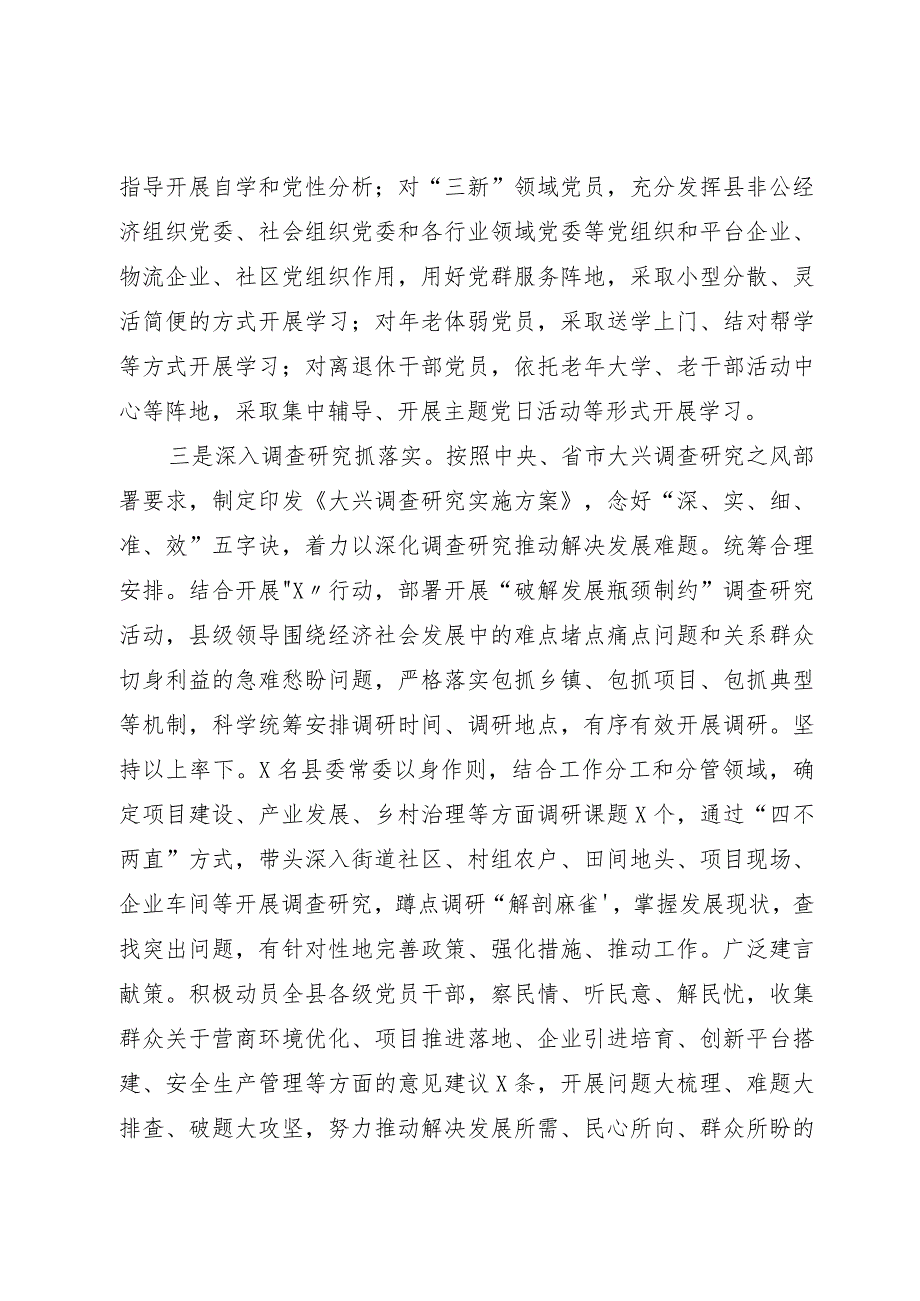 指导开展自学和党性分析；对“三新”领域党员，充分发挥县非公经
济组织党委、社会组织党委和各行业领域党委等党组织和平台企业、
物流企业、社区党组织作用，用好党群服务阵地，采取小型分散、灵
活简便的方式开展学习；对年老体弱党员，采取送学上门、结对帮学
等方式开展学习；对离退休干部党员，依托老年大学、老干部活动中
心等阵地，采取集中辅导、开展主题党日活动等形式开展学习。
三是深入调查研究抓落实。按照中央、省市大兴调查研究之风部
署要求，制定印发《大兴调查研究实施方案》，念好“深、实、细、
准、效”五字诀，着力以深化调查研究推动解决发展难题。统筹合理
安排。结合开展"X〃行动，部署开展“破解发展瓶颈制约”调查研究
活动，县级领导围绕经济社会发展中的难点堵点痛点问题和关系群众
切身利益的急难愁盼问题，严格落实包抓乡镇、包抓项目、包抓典型
等机制，科学统筹安排调研时间、调研地点，有序有效开展调研。坚
持以上率下。X名县委常委以身作则，结合工作分工和分管领域，确
定项目建设、产业发展、乡村治理等方面调研课题X个，通过“四不
两直”方式，带头深入街道社区、村组农户、田间地头、项目现场、
企业车间等开展调查研究，蹲点调研“解剖麻雀'，掌握发展现状，查
找突出问题，有针对性地完善政策、强化措施、推动工作。广泛建言
献策。积极动员全县各级党员干部，察民情、听民意、解民忧，收集
群众关于营商环境优化、项目推进落地、企业引进培育、创新平台搭
建、安全生产管理等方面的意见建议X条，开展问题大梳理、难题大
排查、破题大攻坚，努力推动解决发展所需、民心所向、群众所盼的